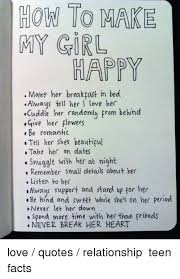 HOW TO MAKE
MY GIRL
HAPPY
• Make her breakfast in bed
• Always tell her I love her
• Cuddle her randomly from behind
• Give her flowers
• Be romantic
• Tell her shes beautiful
• Take her on dates
• Snuggle with her at night
• Remember small details about her
• Listen to her
• Always support and stand up for her
• Be kind and sweet while she's on her period
• Never let her down
• Spend more time with her than friends
• NEVER BREAK HER HEART
love / quotes / relationship teen
facts